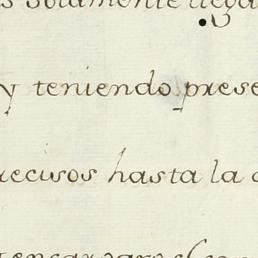 s solamente llega
y teniendo prese
recisos hasta la